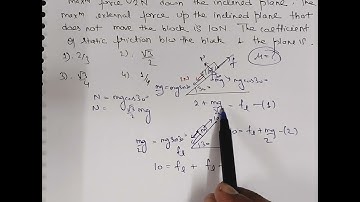 max^m force 2N down the inclined plane. The
max^m external force up the inclined plane that
does not move the block is 10N. The coefficient
of static friction b/w the block & the plane is.
1). 2/3 2). √3/2 μ = ?
3). √3/4 4). 1/4
N = mgcos30°
N = √3/2 mg
mg cos30°
2N
30°
2 + mg/2 = fL — (1)
mg/2 = mgsin30°
30°
10 = fL + mg/2 — (2)
10 = fL + fL